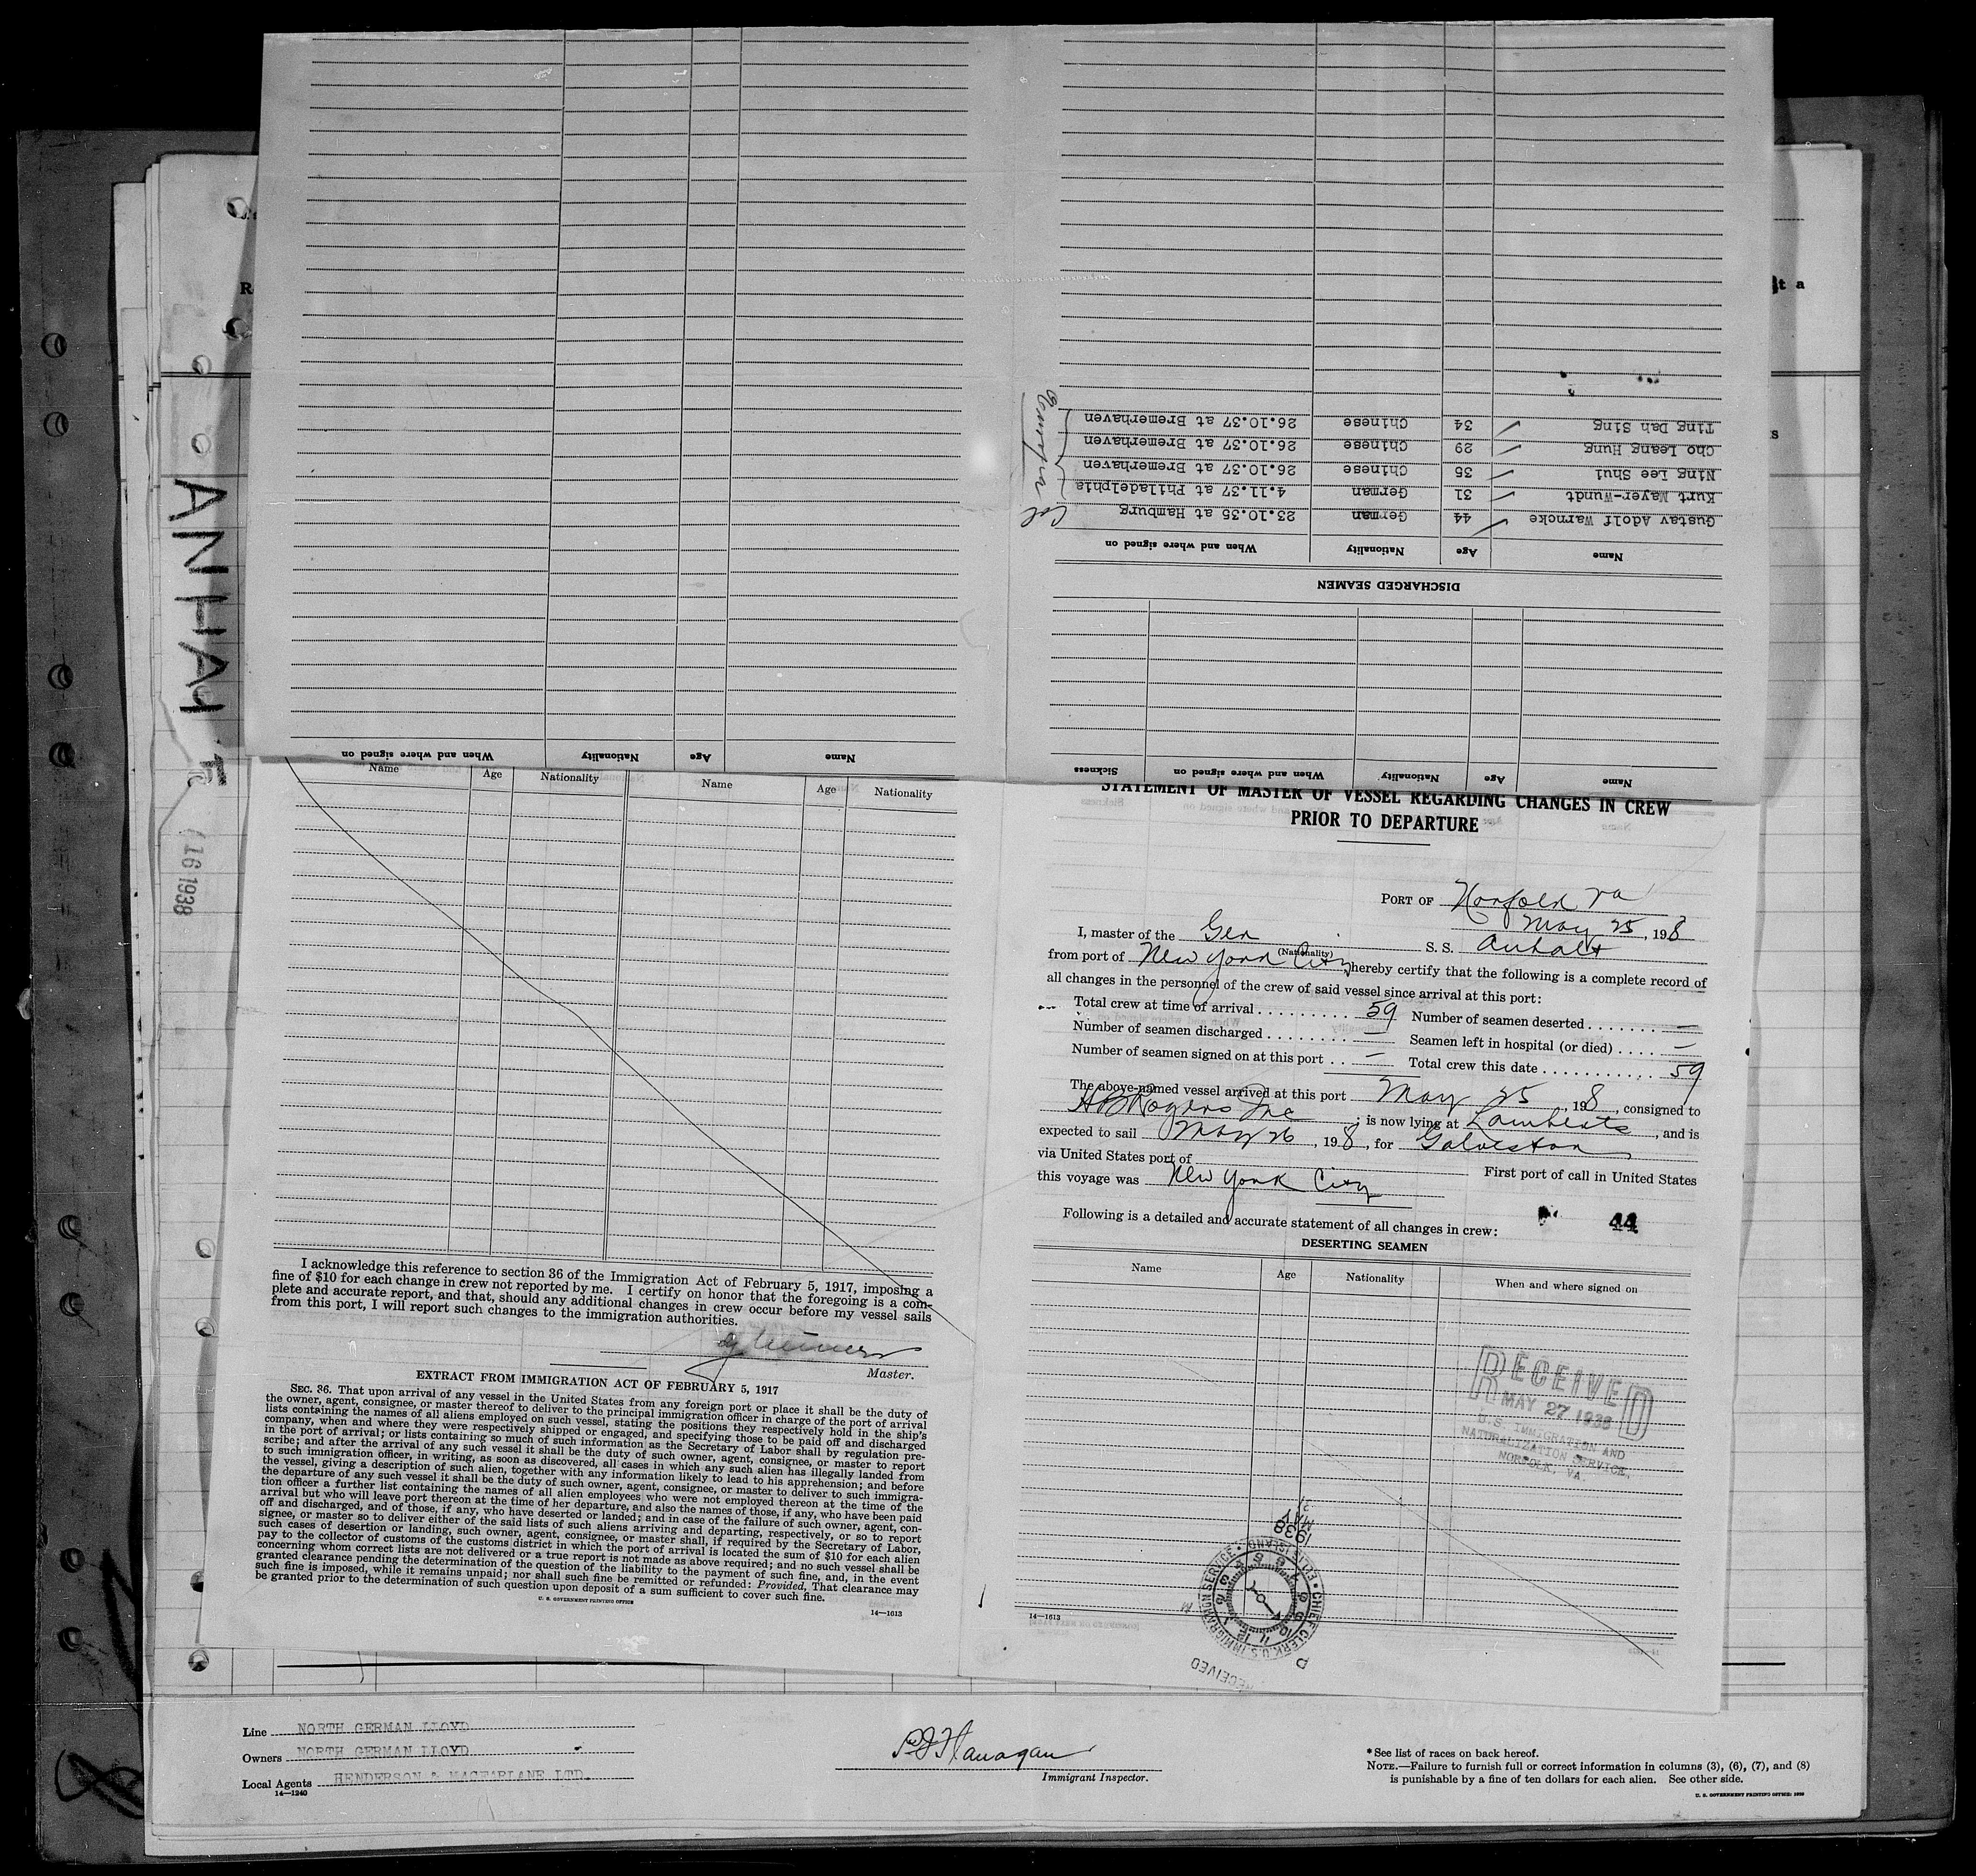 DISCHARGED SEAMEN
Name Age Nationality When and where signed on
Gustav Adolf Warncke 44 German 23.10.35 at Hamburg
Kurt Mayer-Wundt 31 German 4.11.37 at Philadelphia
Ning Lee Shui 35 Chinese 26.10.37 at Bremerhaven
Cho Leang Hung 29 Chinese 26.10.37 at Bremerhaven
Ting Dah Sing 34 Chinese 26.10.37 at Bremerhaven
Name Age Nationality When and where signed on Sickness
Name Age Nationality When and where signed on
ANHALT
16 1938
Name Age Nationality Name Age Nationality
I acknowledge this reference to section 36 of the Immigration Act of February 5, 1917, imposing a
fine of $10 for each change in crew not reported by me. I certify on honor that the foregoing is a com-
plete and accurate report, and that, should any additional changes in crew occur before my vessel sails
from this port, I will report such changes to the immigration authorities.
Master.
EXTRACT FROM IMMIGRATION ACT OF FEBRUARY 5, 1917
SEC. 36. That upon arrival of any vessel in the United States from any foreign port or place it shall be the duty of
the owner, agent, consignee, or master thereof to deliver to the principal immigration officer in charge of the port of arrival
lists containing the names of all aliens employed on such vessel, stating the positions they respectively hold in the ship's
company, when and where they were respectively shipped or engaged, and specifying those to be paid off and discharged
in the port of arrival; or lists containing so much of such information as the Secretary of Labor shall by regulation pre-
scribe; and after the arrival of any such vessel it shall be the duty of such owner, agent, consignee, or master to report
to such immigration officer, in writing, as soon as discovered, all cases in which any such alien has illegally landed from
the vessel, giving a description of such alien, together with any information likely to lead to his apprehension; and before
the departure of any such vessel it shall be the duty of such owner, agent, consignee, or master to deliver to such immigra-
tion officer a further list containing the names of all alien employees who were not employed thereon at the time of the
arrival but who will leave port thereon at the time of her departure, and also the names of those, if any, who have been paid
off and discharged, and of those, if any, who have deserted or landed; and in case of the failure of such owner, agent, con-
signee, or master so to deliver either of the said lists of such aliens arriving and departing, respectively, or so to report
such cases of desertion or landing, such owner, agent, consignee, or master shall, if required by the Secretary of Labor,
pay to the collector of customs of the customs district in which the port of arrival is located the sum of $10 for each alien
concerning whom correct lists are not delivered or a true report is not made as above required; and no such vessel shall be
granted clearance pending the determination of the question of the liability to the payment of such fine, and, in the event
such fine is imposed, while it remains unpaid; nor shall such fine be remitted or refunded: Provided, That clearance may
be granted prior to the determination of such question upon deposit of a sum sufficient to cover such fine.
U. S. GOVERNMENT PRINTING OFFICE
14—1613
STATEMENT OF MASTER OF VESSEL REGARDING CHANGES IN CREW
PRIOR TO DEPARTURE
PORT OF Norfolk Va
May 25, 1938
I, master of the Ger S. S. Anhalt
(Nationality)
from port of New York City, hereby certify that the following is a complete record of
all changes in the personnel of the crew of said vessel since arrival at this port:
Total crew at time of arrival 59 Number of seamen deserted —
Number of seamen discharged — Seamen left in hospital (or died) —
Number of seamen signed on at this port — Total crew this date 59
The above-named vessel arrived at this port May 25, 198, consigned to
HB Rogers Inc; is now lying at Lamberts, and is
expected to sail May 26, 198, for Galveston
via United States port of First port of call in United States
this voyage was New York City
Following is a detailed and accurate statement of all changes in crew: 44
DESERTING SEAMEN
Name Age Nationality When and where signed on
RECEIVED
MAY 27 1938
U.S. IMMIGRATION AND
NATURALIZATION SERVICE,
NORFOLK, VA.
1938
MAY
31
CHIEF CLERK, U.S. IMMIGRATION SERVICE • ELLIS ISLAND •
RECEIVED
14—1613
Line NORTH GERMAN LLOYD
Owners NORTH GERMAN LLOYD
Local Agents HENDERSON & MACFARLANE LTD.
14—1240
PJ Flanagan
Immigrant Inspector.
* See list of races on back hereof.
NOTE.—Failure to furnish full or correct information in columns (3), (6), (7), and (8)
is punishable by a fine of ten dollars for each alien. See other side.
U. S. GOVERNMENT PRINTING OFFICE: 1936